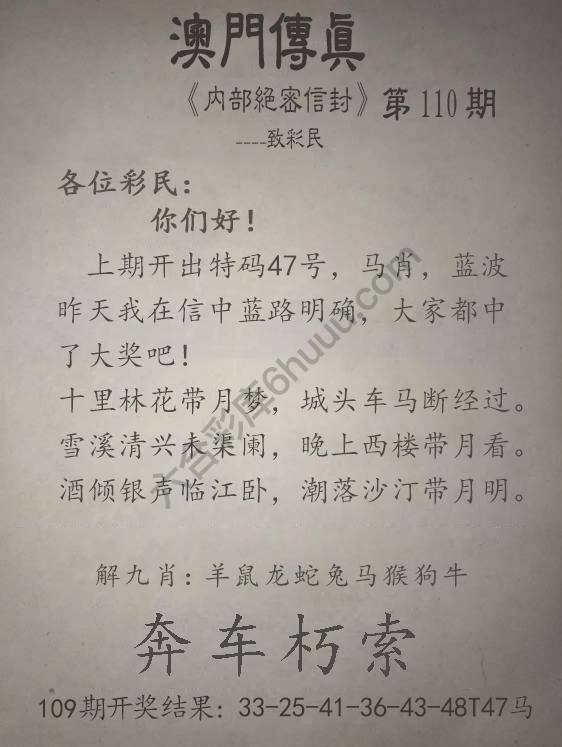 澳門傳眞
《内部絕密信封》第110期
----致彩民
各位彩民：
你们好！
上期开出特码47号，马肖，蓝波
昨天我在信中蓝路明确，大家都中
了大奖吧！
十里林花带月梦，城头车马断经过。
雪溪清兴未渠阑，晚上西楼带月看。
酒倾银声临江卧，潮落沙汀带月明。
解九肖：羊鼠龙蛇兔马猴狗牛
奔车朽索
109期开奖结果：33-25-41-36-43-48T47马
六合彩库6huuu.com